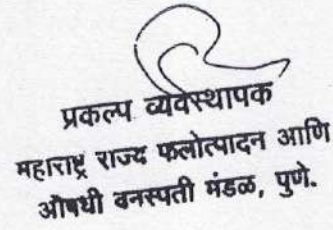 प्रकल्प व्यवस्थापक
महाराष्ट्र राज्य फलोत्पादन आणि
औषधी वनस्पती मंडळ, पुणे.